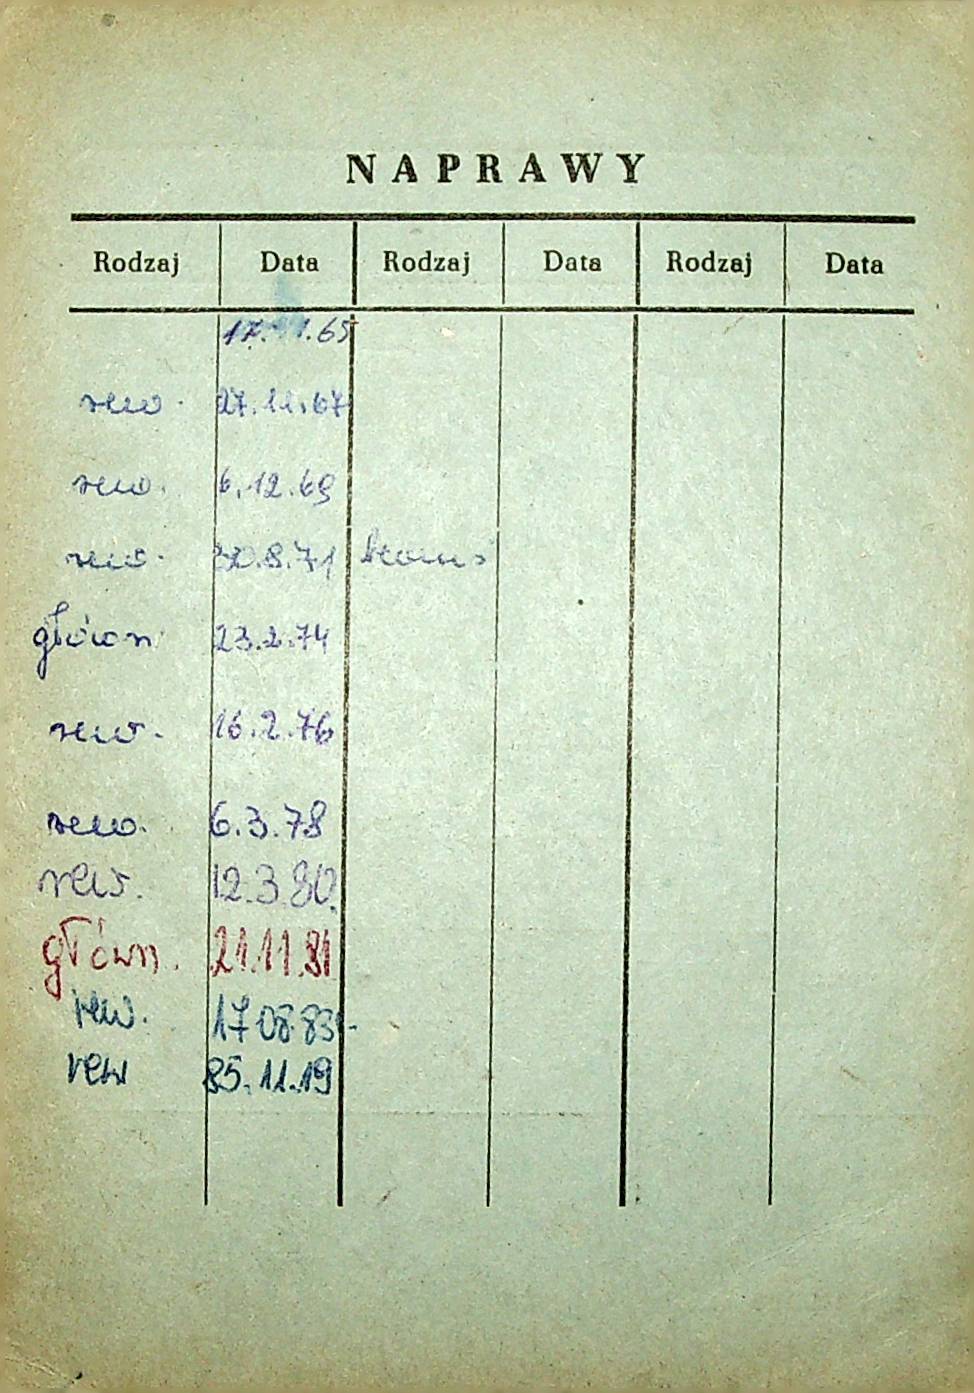 NAPRAWY
Rodzaj Data Rodzaj Data Rodzaj Data
rew. 27.11.67
rew. 6.12.69
rew. 30.8.71
główn 23.2.74
rew. 16.2.76
rew. 6.3.78
rew. 12.3.80.
główn. 21.11.81
rew. 17 08.83-
rew 85.11.19